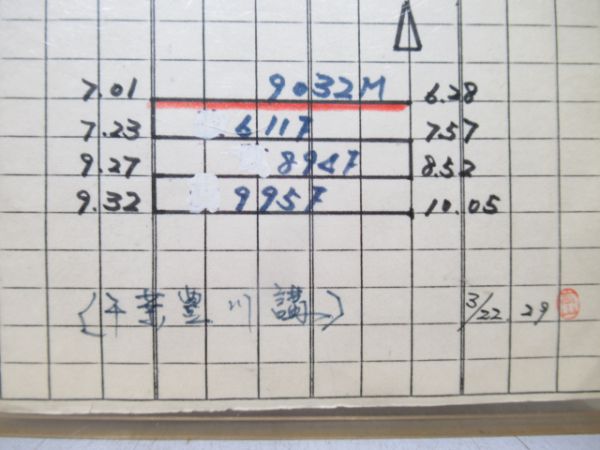 7.01 9032M 6.28
7.23 6117 7.57
9.27 8947 8.52
9.32 9957 10.05
(千葉豊川講) 3/22.29